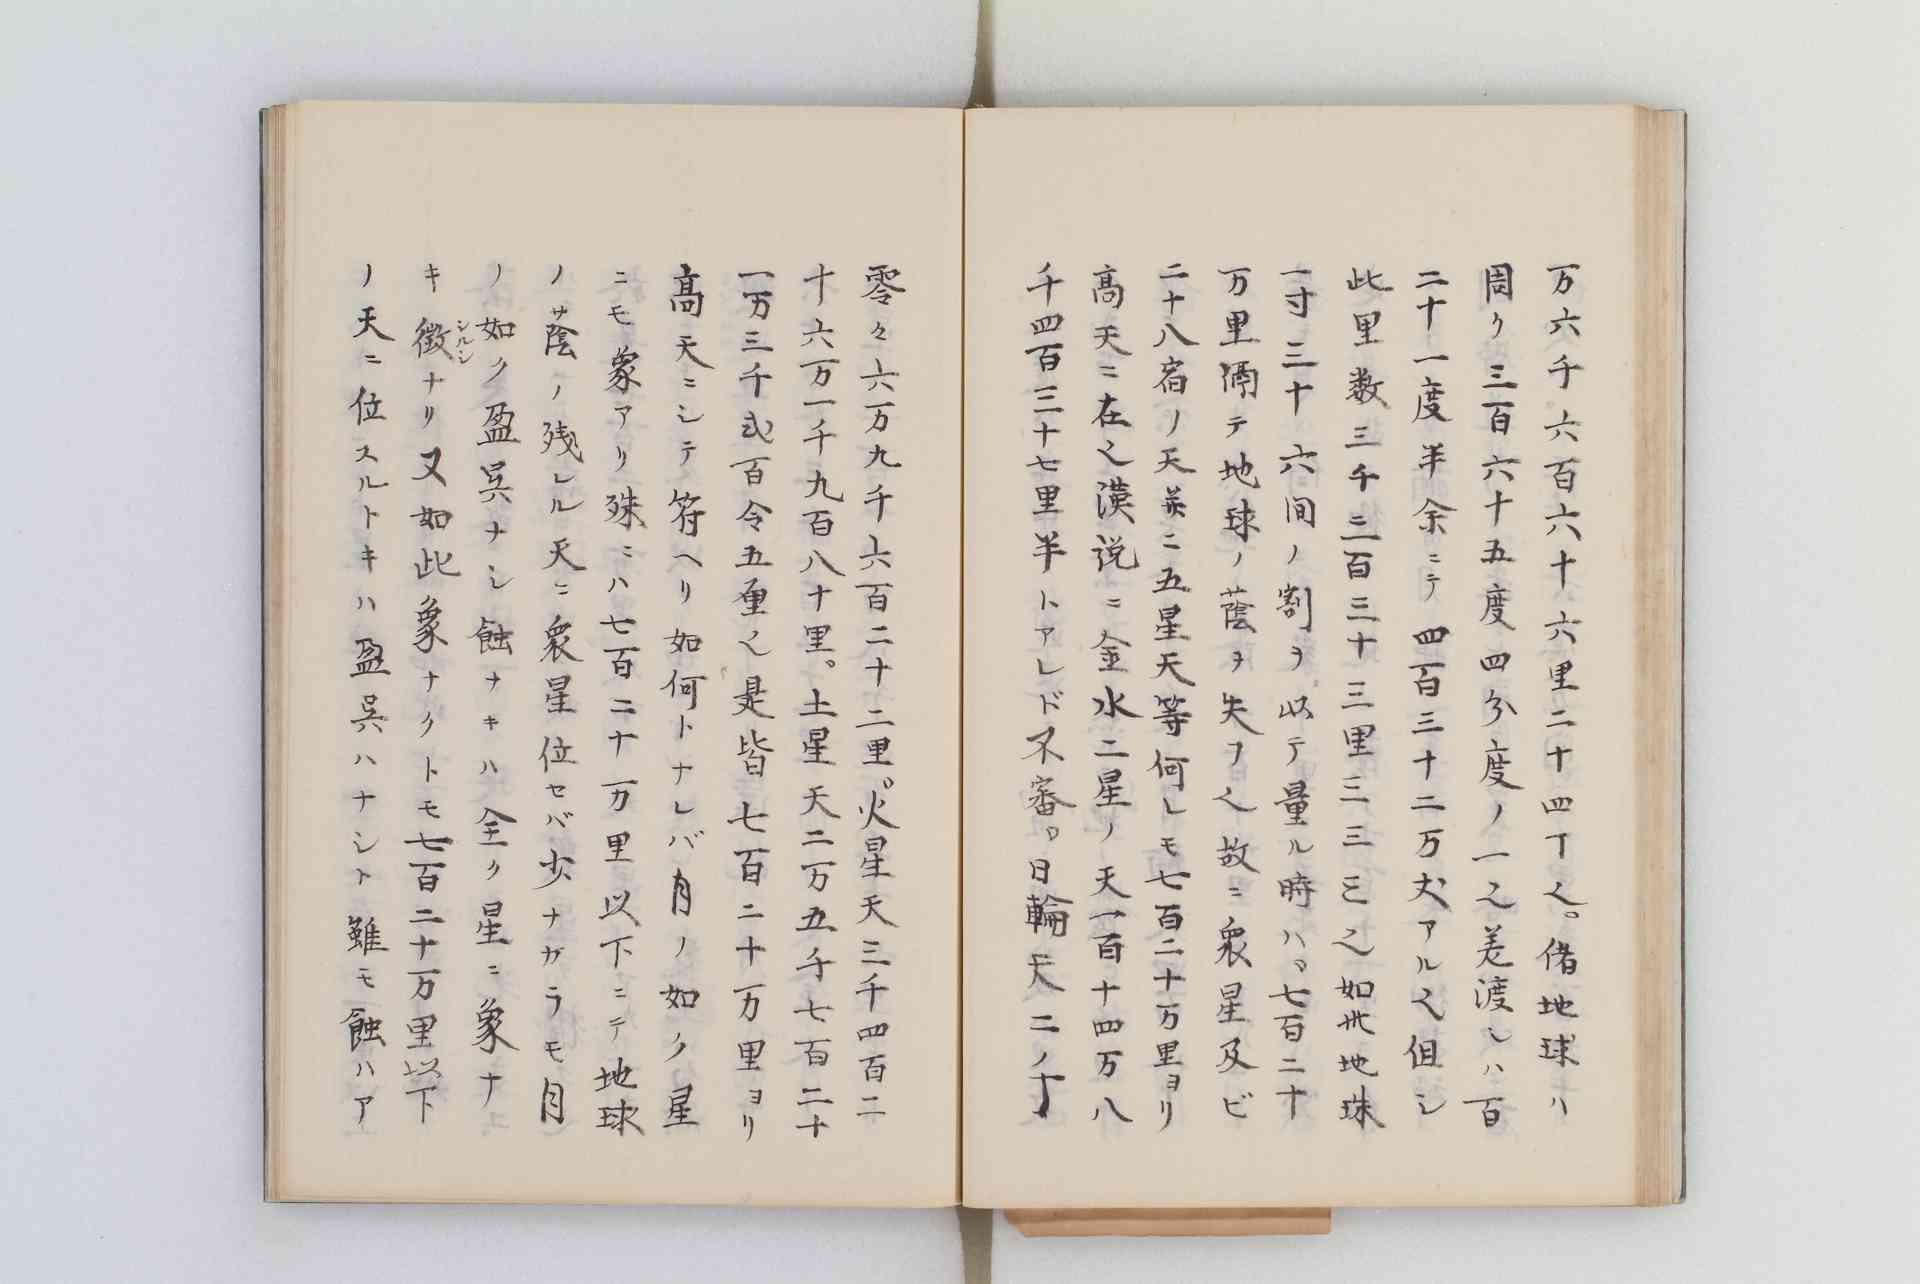 万六千六百六十六里二十四丁也。偖地球ハ
周り三百六十五度四分度ノ一之差渡しハ百
二十一度半余ニテ四百三十二万丈アル也但シ
此里数三千二百三十三里三三三之如此地球
一寸三十六間ノ割ヲ以テ量ル時ハ。七百二十
万里隔テ地球ノ蔭ヲ失フ也故ニ衆星及ビ
二十八宿ノ天并ニ五星天等何レモ七百二十万里ヨリ
高天ニ在之漢説ニ金水二星ノ天一百十四万八
千四百三十七里半トアレド不審。日輪天二ノ十
零々六万九千六百二十二里。火星天三千四百二
十六万一千九百八十里。土星天二万五千七百二十
一万三千弐百令五厘也是皆七百二十万里ヨリ
高天ニシテ符ヘリ如何トナレバ月ノ如ク星
ニモ象アリ殊ニハ七百二十万里以下ニテ地球
ノサ蔭ノ残レル天ニ衆星位セバ少ナガラモ月
ノ如ク盈呉ナシ蝕ナキハ全ク星ニ象ナ
キ徴シルシナリ又如此象ナクトモ七百二十万里以下
ノ天ニ位スルトキハ盈呉ハナシト雖モ蝕ハア